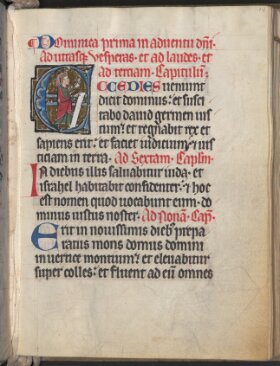 Dominica prima in adventu dn̄i.
Ad utrasq; vesperas. et ad laudes. et
ad terciam. Capitulū.
ECCE DIES veniunt
dicit dominus: et susci
tabo david germen ius
tum. et regnabit rex et
sapiens erit: et faciet iudicium: et ius
ticiam in terra. Ad Sextam. Capl̄m.
In diebus illis salvabitur iuda. et
israhel habitabit confidenter: et hoc
est nomen quod vocabunt eum. do
minus iustus noster. Ad Nonā. Cap̄.
Erit in novissimis dieb; prepa
ratus mons domus domini
in vertice montium: et elevabitur
super colles: et fluent ad eū omnes